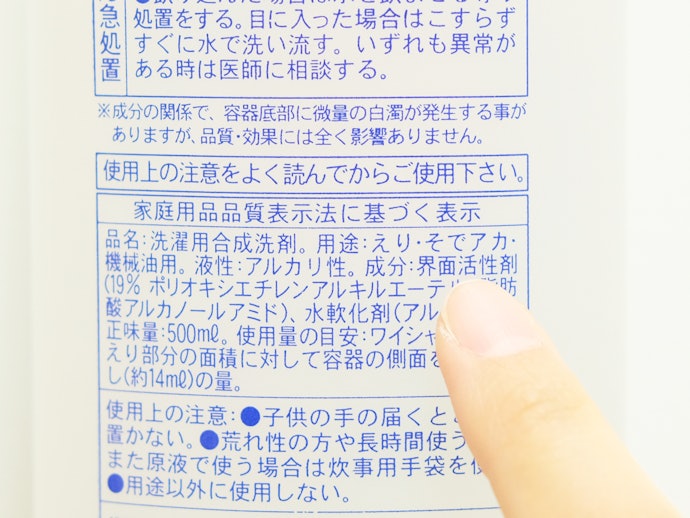 急処置
処置をする。目に入った場合はこすらず
すぐに水で洗い流す。いずれも異常が
ある時は医師に相談する。
※成分の関係で、容器底部に微量の白濁が発生する事が
ありますが、品質・効果には全く影響ありません。
使用上の注意をよく読んでからご使用下さい。
家庭用品品質表示法に基づく表示
品名:洗濯用合成洗剤。用途:えり・そでアカ・
機械油用。液性:アルカリ性。成分:界面活性剤
(19% ポリオキシエチレンアルキルエーテル 脂肪
酸アルカノールアミド)、水軟化剤(アル
正味量:500mℓ。使用量の目安:ワイシャ
えり部分の面積に対して容器の側面を
し(約14mℓ)の量。
使用上の注意:●子供の手の届くと
置かない。●荒れ性の方や長時間使う
また原液で使う場合は炊事用手袋を使
●用途以外に使用しない。